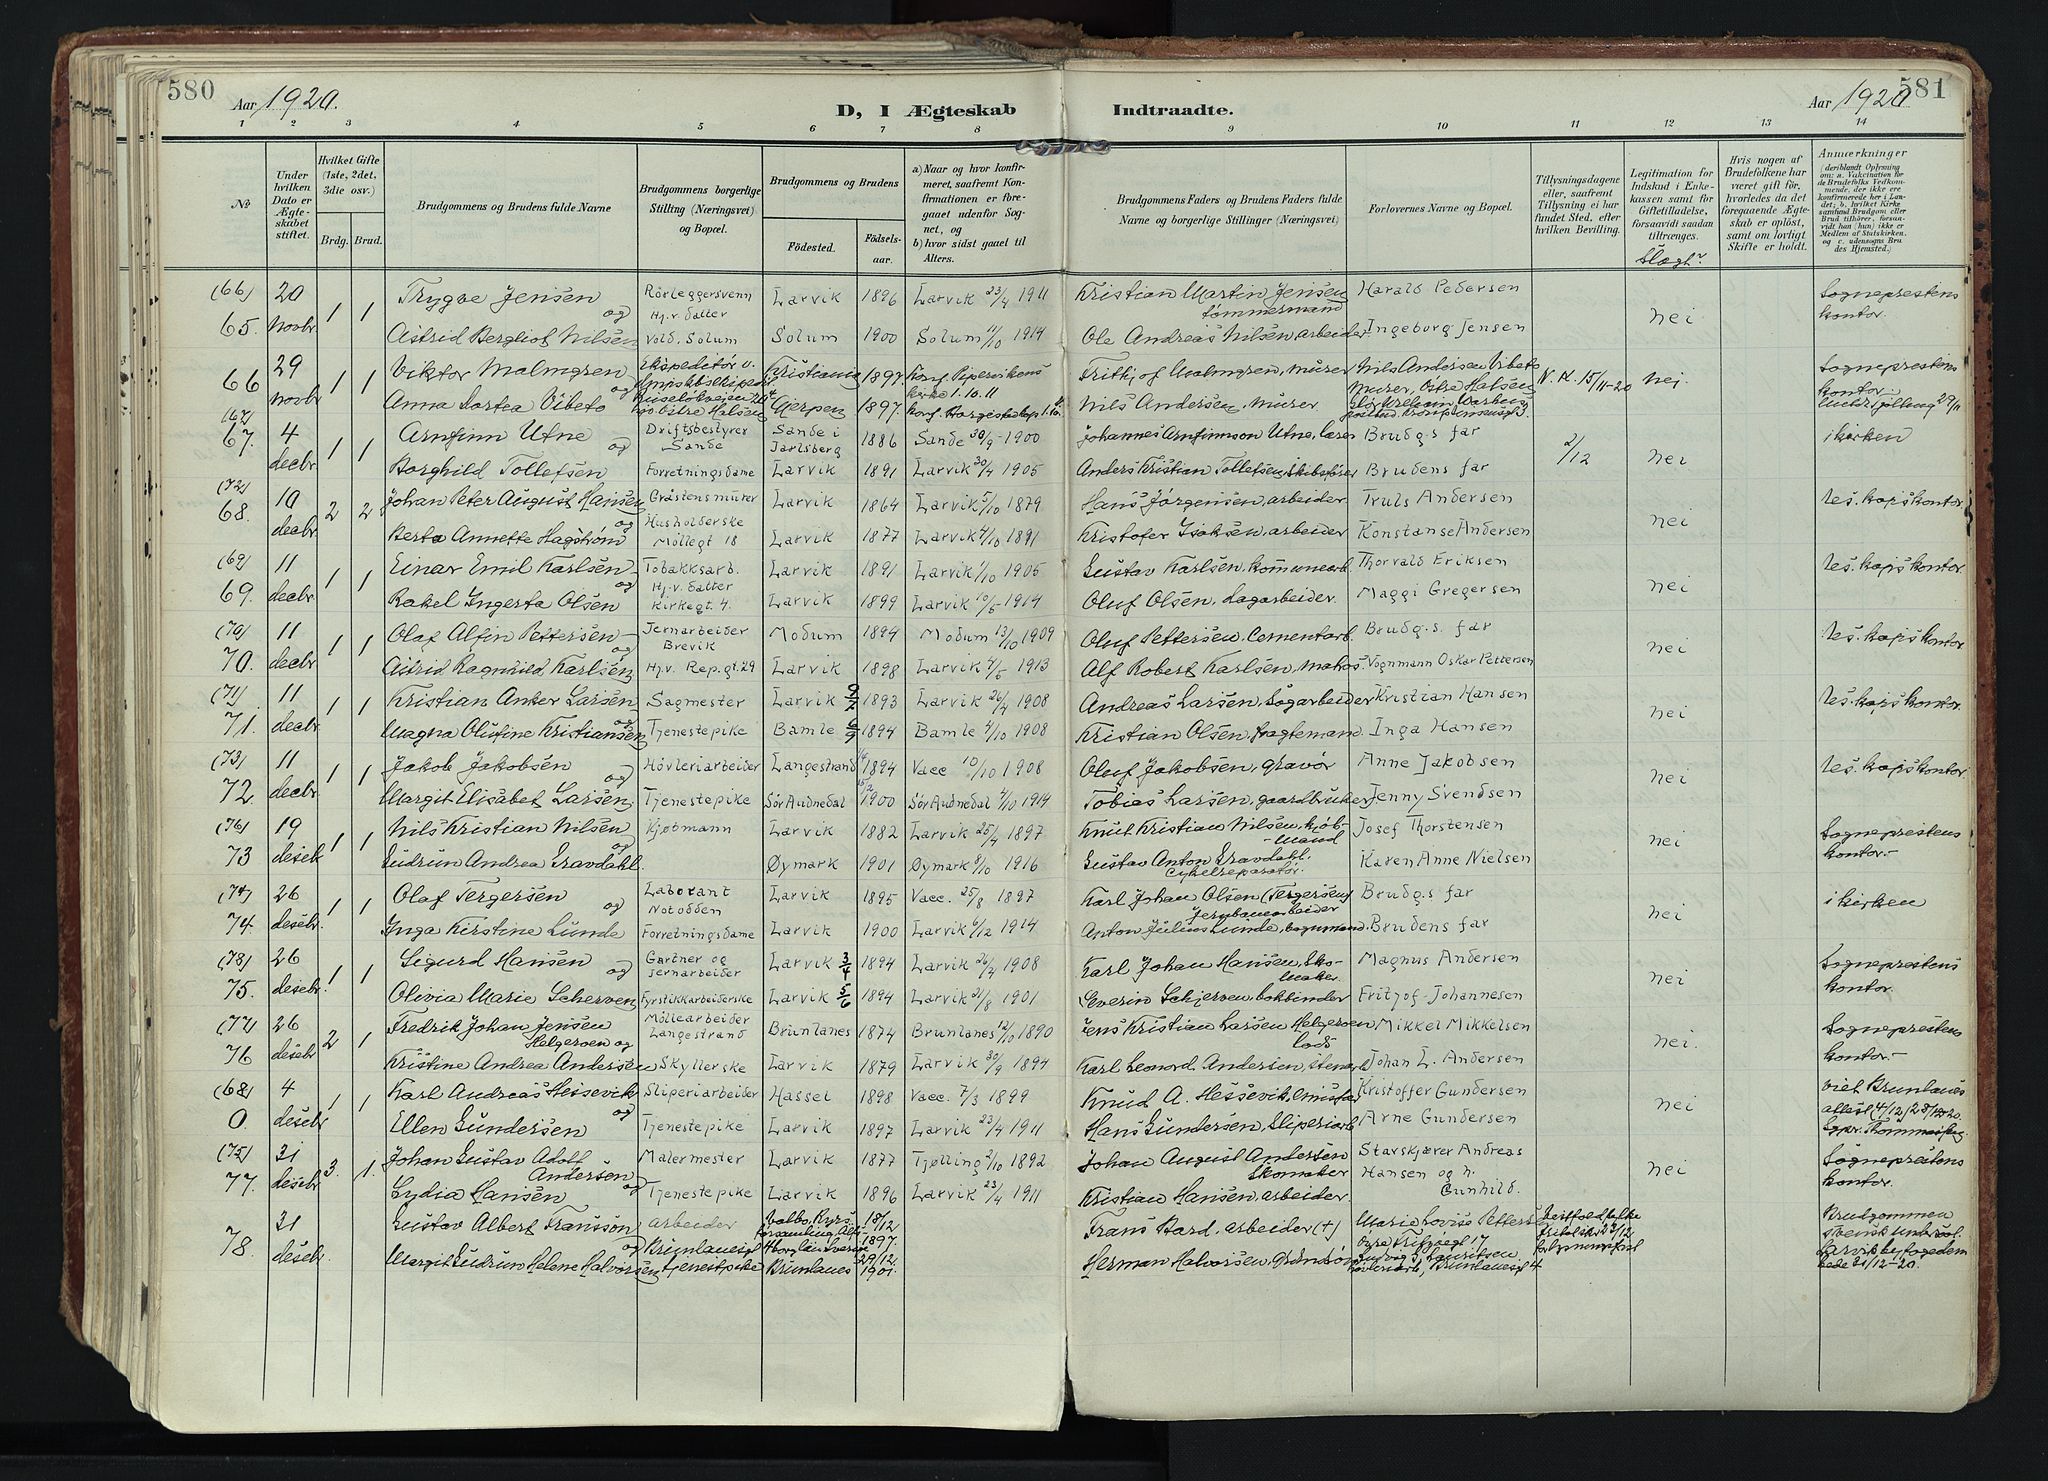 580
Aar 1920.
D, I Ægteskab
Indtraadte.
Aar 1920
581
1 2 3 4 5 6 7 8 9 10 11 12 13 14
No
Under hvilken Dato er Ægteskabet stiftet.
Hvilket Gifte (1ste, 2det, 3die osv.)
Brdg. Brud.
Brudgommens og Brudens fulde Navne
Brudgommens borgerlige Stilling (Næringsvei) og Bopæl.
Brudgommens og Brudens
Fødested.
Fødselsaar.
a) Naar og hvor konfirmeret, saafremt Konfirmationen er foregaaet udenfor Sognet, og
b) hvor sidst gaaet til Alters.
Brudgommens Faders og Brudens Faders fulde Navne og borgerlige Stillinger (Næringsvei)
Forlovernes Navne og Bopæl.
Tillysningsdagene eller, saafremt Tillysning ei har fundet Sted, efter hvilken Bevilling.
Legitimation for Indskud i Enkekassen samt for Giftetilladelse, forsaavidt saadan tiltrænges.
Slægt?
Hvis nogen af Brudefolkene har været gift før, hvorledes da det foregaaende Ægteskab er opløst, samt om lovligt Skifte er holdt.
Anmærkninger
(deriblandt Oplysning om: a. Vaccination for de Brudefolks Vedkommende, der ikke ere konfirmerede her i Landet; b. hvilket Kirkesamfund Brudgom eller Brud tilhører, forsaavidt han (hun) ikke er Medlem af Statskirken, og c. udensogns Brudes Hjemsted.)
(66) 20 1 1 Trygve Jensen og Rörleggersvenn Larvik 1896 Larvik 23/4 1911 Kristian Martin Jensen tømmermand Harald Pedersen Sogneprestens kontor.
65. novbr Astrid Bergliot Nilsen Hj.v. datter Vold. Solum Solum 1900 Solum 11/10 1914 Ole Andreas Nilsen, arbeider Ingeborg Jensen nei
66 29 1 1 Viktor Malmgren og Ekspeditør v. Kristiania 1897 Konf. Pipervikens kirke 1.10.11 Fritjof Malmgren, murer Nils Andersen Vibeto Murer, Østre Halsen N. K. 15/11-20 nei. Sogneprestens kontor.
novbr Anna Dortea Vibeto Østre Halsen Gjerpen 1897. Nils Andersen, murer
(67) 4 1 1 Arnfinn Utne og Driftsbestyrer Sande Sande i Jarlsberg 1886 Sande 30/9-1900 Johannes Arnfinnson Utne, lærer Brudg.s far 2/12 i kirken
67. decbr. Borghild Tollefsen Forretningsdame Larvik 1891 Larvik 30/4 1905 Anders Kristian Tollefsen, skibsfører Brudens far nei
(72) 10 2 2 Johan Peter August Hansen og Gråstensmurer Larvik 1864 Larvik 5/10 1879 Hans Jörgensen, arbeider Truls Andersen res. kap's kontor.
68. decbr. Berta Annette Hagstrøm Husholderske Möllegt 18 Larvik 1877 Larvik 4/10 1891 Kristofer Isaksen, arbeider Konstanse Andersen nei
(69) 11 1 1 Einar Emil Karlsen og Tobakksarb. Larvik 1891 Larvik 1/10 1905 Gustav Karlsen, kommunearb. Thorvald Eriksen res. kap's kontor.
69. decbr. Rakel Ingerta Olsen Hj.v. datter Kirkegt. 4. Larvik 1899 Larvik 10/5 1914 Oluf Olsen, Lagarbeider. Maggi Gregersen nei
(70) 11 1 1 Olaf Alfin Pettersen og Jernarbeider Brevik Modum 1894 Modum 13/10 1909 Oluf Pettersen, Cementarb. Brudg.s. far res. kap's kontor
70. decbr. Astrid Ragnhild Karlsen Hj.v. Rep.gt.29 Larvik 1898 Larvik 4/5 1913 Alf Robert Karlsen, matros Vognmann Oskar Pettersen nei
(71) 11 1 1 Kristian Anker Larsen og Sagmester Larvik 1893 Larvik 26/4 1908 Andreas Larsen, Sagarbeider Kristian Hansen res. kap's kontor.
71. decbr. Magna Olufine Kristiansen Tjenestepike Bamle 1894 Bamle 4/10 1908 Kristian Olsen, fragtemand Inga Hansen nei
(73) 11 1 1 Jakob Jakobsen og Hövleriarbeider Langestrand 1894 Vacc 10/10 1908 Oluf Jakobsen, gravør Anne Jakobsen res. kap's kontor
72. decbr. Margit Elisabet Larsen Tjenestepike Sör Audnedal 1900 Sör Audnedal 4/10 1914 Tobias Larsen, gaardbruker Jenny Svendsen nei
(76) 19 1 1 Nils Kristian Nilsen og Kjøbmann Larvik 1882 Larvik 25/4 1897 Knut Kristian Nilsen, kjøbmand Josef Thorstensen Sogneprestens kontor.-
73 desbr Gudrun Andrea Gravdahl. Øymark 1901 Øymark 8/10 1916 Gustav Anton Gravdahl. Cykelreparatør. Karen Anne Nielsen nei
(74) 26 1 1 Olaf Tergersen og Laborant Notodden Larvik 1895 Vacc. 25/8 1897 Karl Johan Olsen (Tergersen) Jernbanearbeider Brudg.s far i kirken
74. desebr. Inga Kirstine Lunde Forretningsdame Larvik 1900 Larvik 6/12 1914 Anton Julius Lunde, vognmand. Brudens far nei
(78) 26 1 1 Sigurd Hansen og Gartner og jernarbeider Larvik 3/4 1894 Larvik 26/4 1908 Karl Johan Hansen, Skomaker. Magnus Andersen Sogneprestens kontor.
75. desebr. Olivia Marie Scherven Fyrstikkarbeiderske Larvik 5/6 1894 Larvik 21/8 1901 Severin Schjerven, bokbinder Fritjof Johannesen nei
(77) 26 2 1 Fredrik Johan Jensen Helgeroen og Möllearbeider Langestrand Brunlanes 1874 Brunlanes 12/10 1890 Jens Kristian Larsen Helgeroen lods Mikkel Mikkelsen Sogneprestens kontor.-
76 desebr Kristine Andrea Andersen Skyllerske Larvik 1879 Larvik 30/9 1894 Karl Leonord. Andersen, Johan L. Andersen nei.
(68) 4 1 1 Karl Andreas Hessevik og Sliperiarbeider Hassel 1898 Vacc. 7/3 1899 Knud A. Hessevik, Kristoffer Gundersen viet Brunlanes
0. desebr Ellen Gundersen Tjenestepike Larvik 1897 Larvik 23/4 1911 Hans Gundersen, Sliperiarb Arne Gundersen nei attest 4/12
(75) 31 3. 1. Johan Gustav Adolf Andersen og Malermester Larvik 1877 Tjølling 2/10 1892 Johan August Andersen Skomaker Stavskjærer Andreas Hansen og h. Gunhild. Sogneprestens kontor.
77. desebr Lydia Hansen Tjenestepike Larvik 1896 Larvik 23/4 1911 Kristian Hansen, arbeider. nei
78. 31 Gustav Albert Fransson og arbeider 18/12 1897. Frans Bard, arbeider (+) Marie Lovise Petterse Brudgommen svensk undersåt.
desebr. Margit Gudrun Helene Halvorsen tjenestepike Brunlanes 29/12. 1901. Herman Halvorsen, Ludvig S. Lauritsen, Brunlanesgt 4 31/12-20.